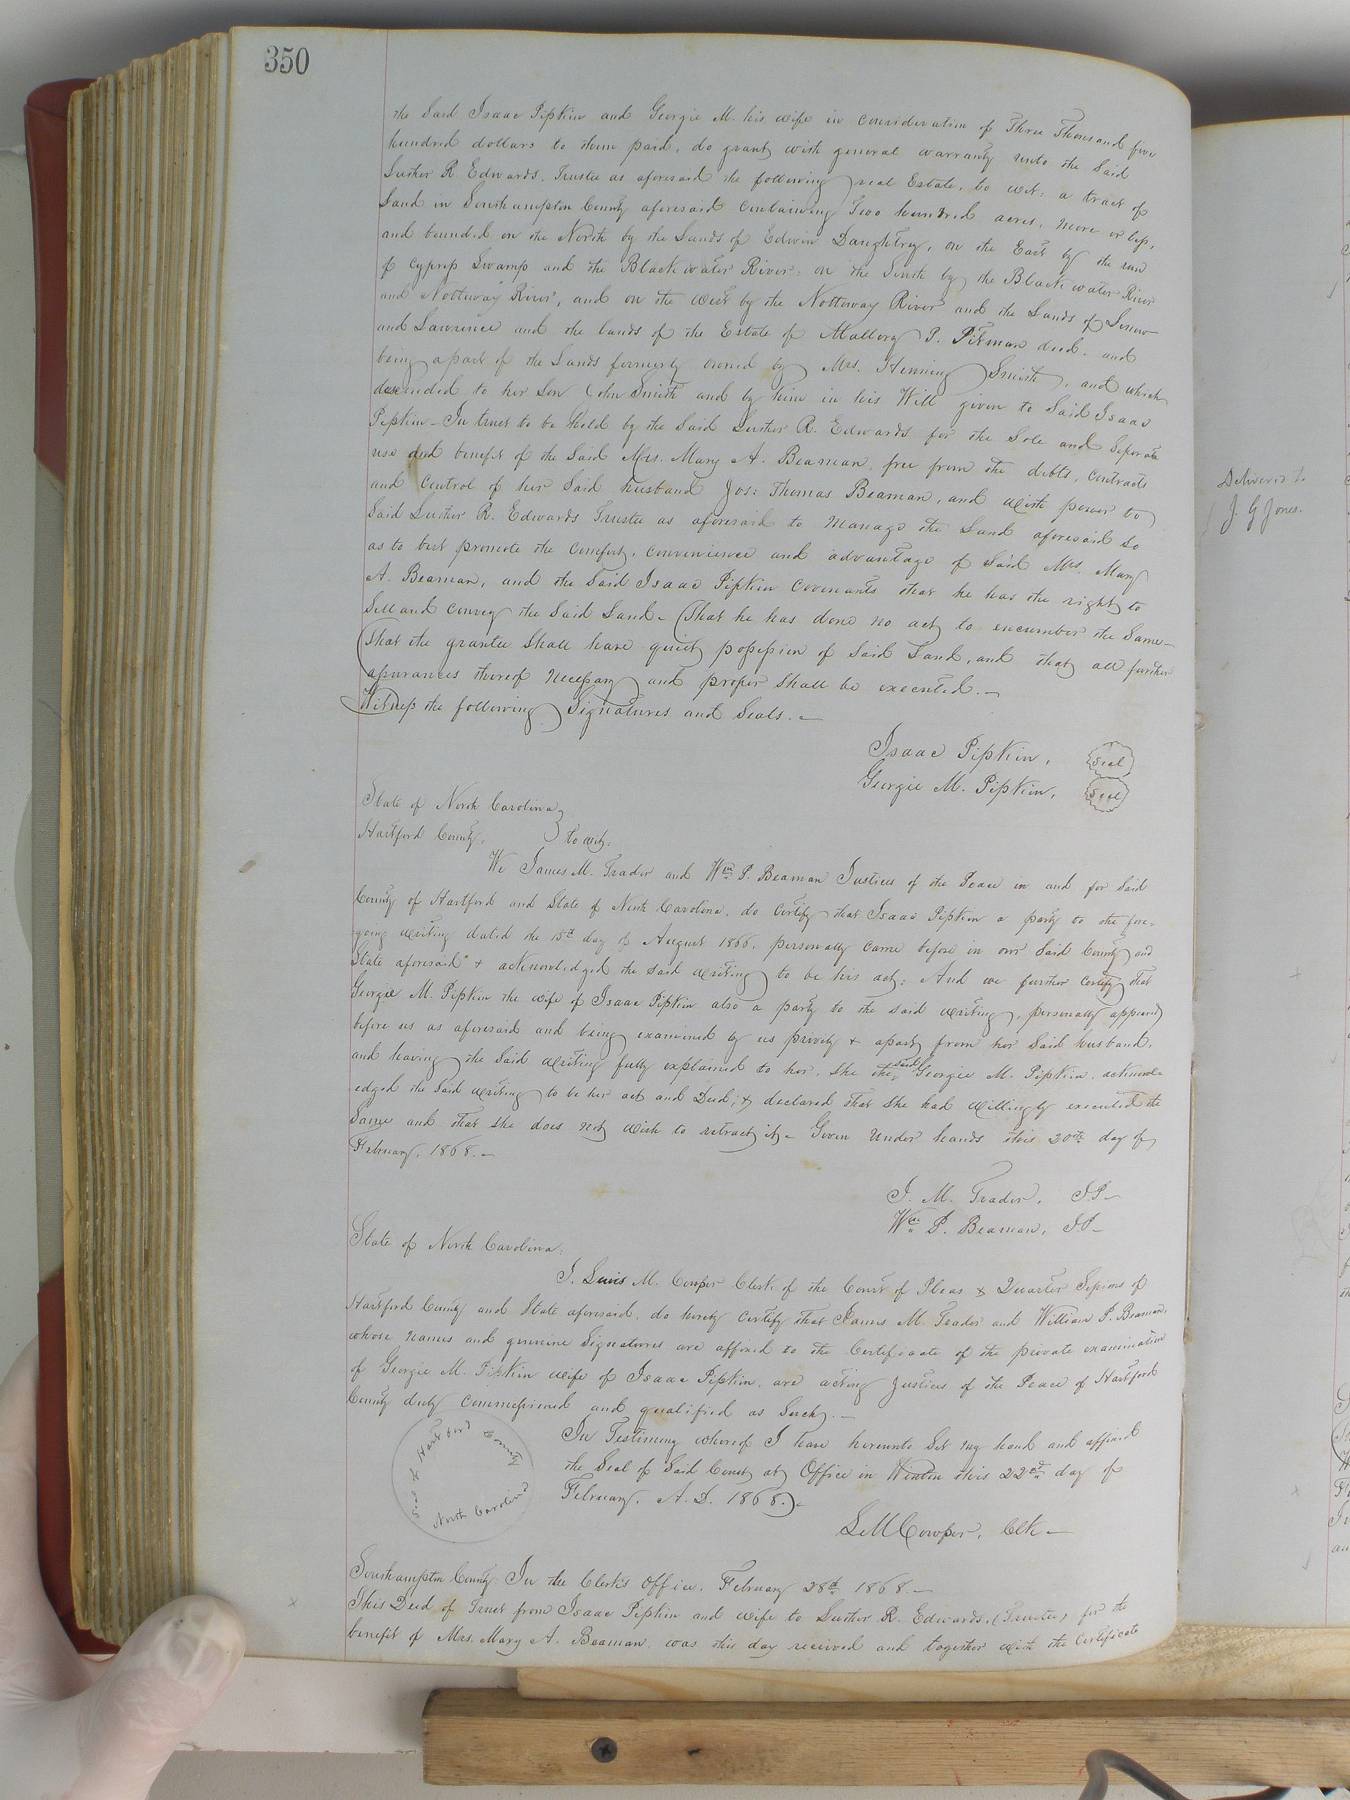 350
the Said Isaac Pipkin and Georgie M. his wife in consideration of Three Thousand five
hundred dollars to them paid, do grant with general warranty unto the Said
Luther R Edwards, Trustee as aforesaid the following real Estate, to wit: a tract of
Land in Southampton County aforesaid containing Two hundred acres, more or less,
and bounded on the North by the Lands of Edwin Daughtry, on the East by the run
of Cypress Swamp and the Blackwater River: on the South by the Blackwater River
and Nottoway River, and on the West by the Nottoway River and the Lands of
and Lawrence and the lands of the Estate of Mallory P. Pitman decd. and
being a part of the Lands formerly owned by Mrs. Henning Smith, and which
descended to her Son John Smith and by him in his Will given to Said Isaac
Pipkin - In trust to be held by the Said Luther R. Edwards for the Sole and Seperate
use and benefit of the Said Mrs. Mary A. Beaman, free from the debts, contracts
and Control of her Said husband Jos: Thomas Beaman, and with power to
Said Luther R. Edwards Trustee as aforesaid to manage the Land aforesaid So
as to best promote the comfort, convenience and advantage of Said Mrs. Mary
A. Beaman, and the Said Isaac Pipkin Covenants that he has the right to
Sell and convey the Said Land - That he has done no act to encumber the Same -
That the grantee Shall have quiet possession of Said Land, and that all further
assurances thereof necessary and proper Shall be executed. -
Witness the following Signatures and Seals. -
Isaac Pipkin, Seal
Georgie M. Pipkin, Seal
State of North Carolina
Hartford County, to wit:
We James M. Trader and Wm P. Beaman Justices of the Peace in and for Said
County of Hartford and State of North Carolina, do Certify that Isaac Pipkin a party to the fore-
going writing dated the 15th day of August 1866, personally came before in our Said County and
State aforesaid & acknowledged the said writing to be his act: And we further Certify that
Georgie M. Pipkin the wife of Isaac Pipkin also a party to the said writing, personally appeared
before us as aforesaid and being examined by us privily & apart from her Said husband,
and having the Said writing fully explained to her, She the said Georgie M. Pipkin, acknowl-
edged the Said writing to be her act and Deed, & declared that She had willingly executed the
Same and that She does not wish to retract it - Given under hands this 20th day of
February, 1868. -
J. M. Trader, JP -
Wm P. Beaman, JP -
State of North Carolina:
I. Lewis M. Cowper Clerk of the Court of Pleas & Quarter Sessions of
Hartford County and State aforesaid, do hereby Certify that James M. Trader and William P. Beaman,
whose names and genuine Signatures are affixed to the Certificate of the private examination
of Georgie M. Pipkin wife of Isaac Pipkin, are acting Justices of the Peace of Hartford
County duly commissioned and qualified as Such. -
In Testimony whereof I have hereunto Set my hand and affixed
the Seal of Said Court at Office in Winton this 22nd day of
February, A. D. 1868. -
Seal of Hartford County
North Carolina
L M Cowper, Clk -
Southampton County: In the Clerk's Office, February 28th 1868. -
This Deed of Trust from Isaac Pipkin and wife to Luther R. Edwards, (Trustee) for the
benefit of Mrs. Mary A. Beaman, was this day received and together with the Certificate
Delivered to
J. G Jones.